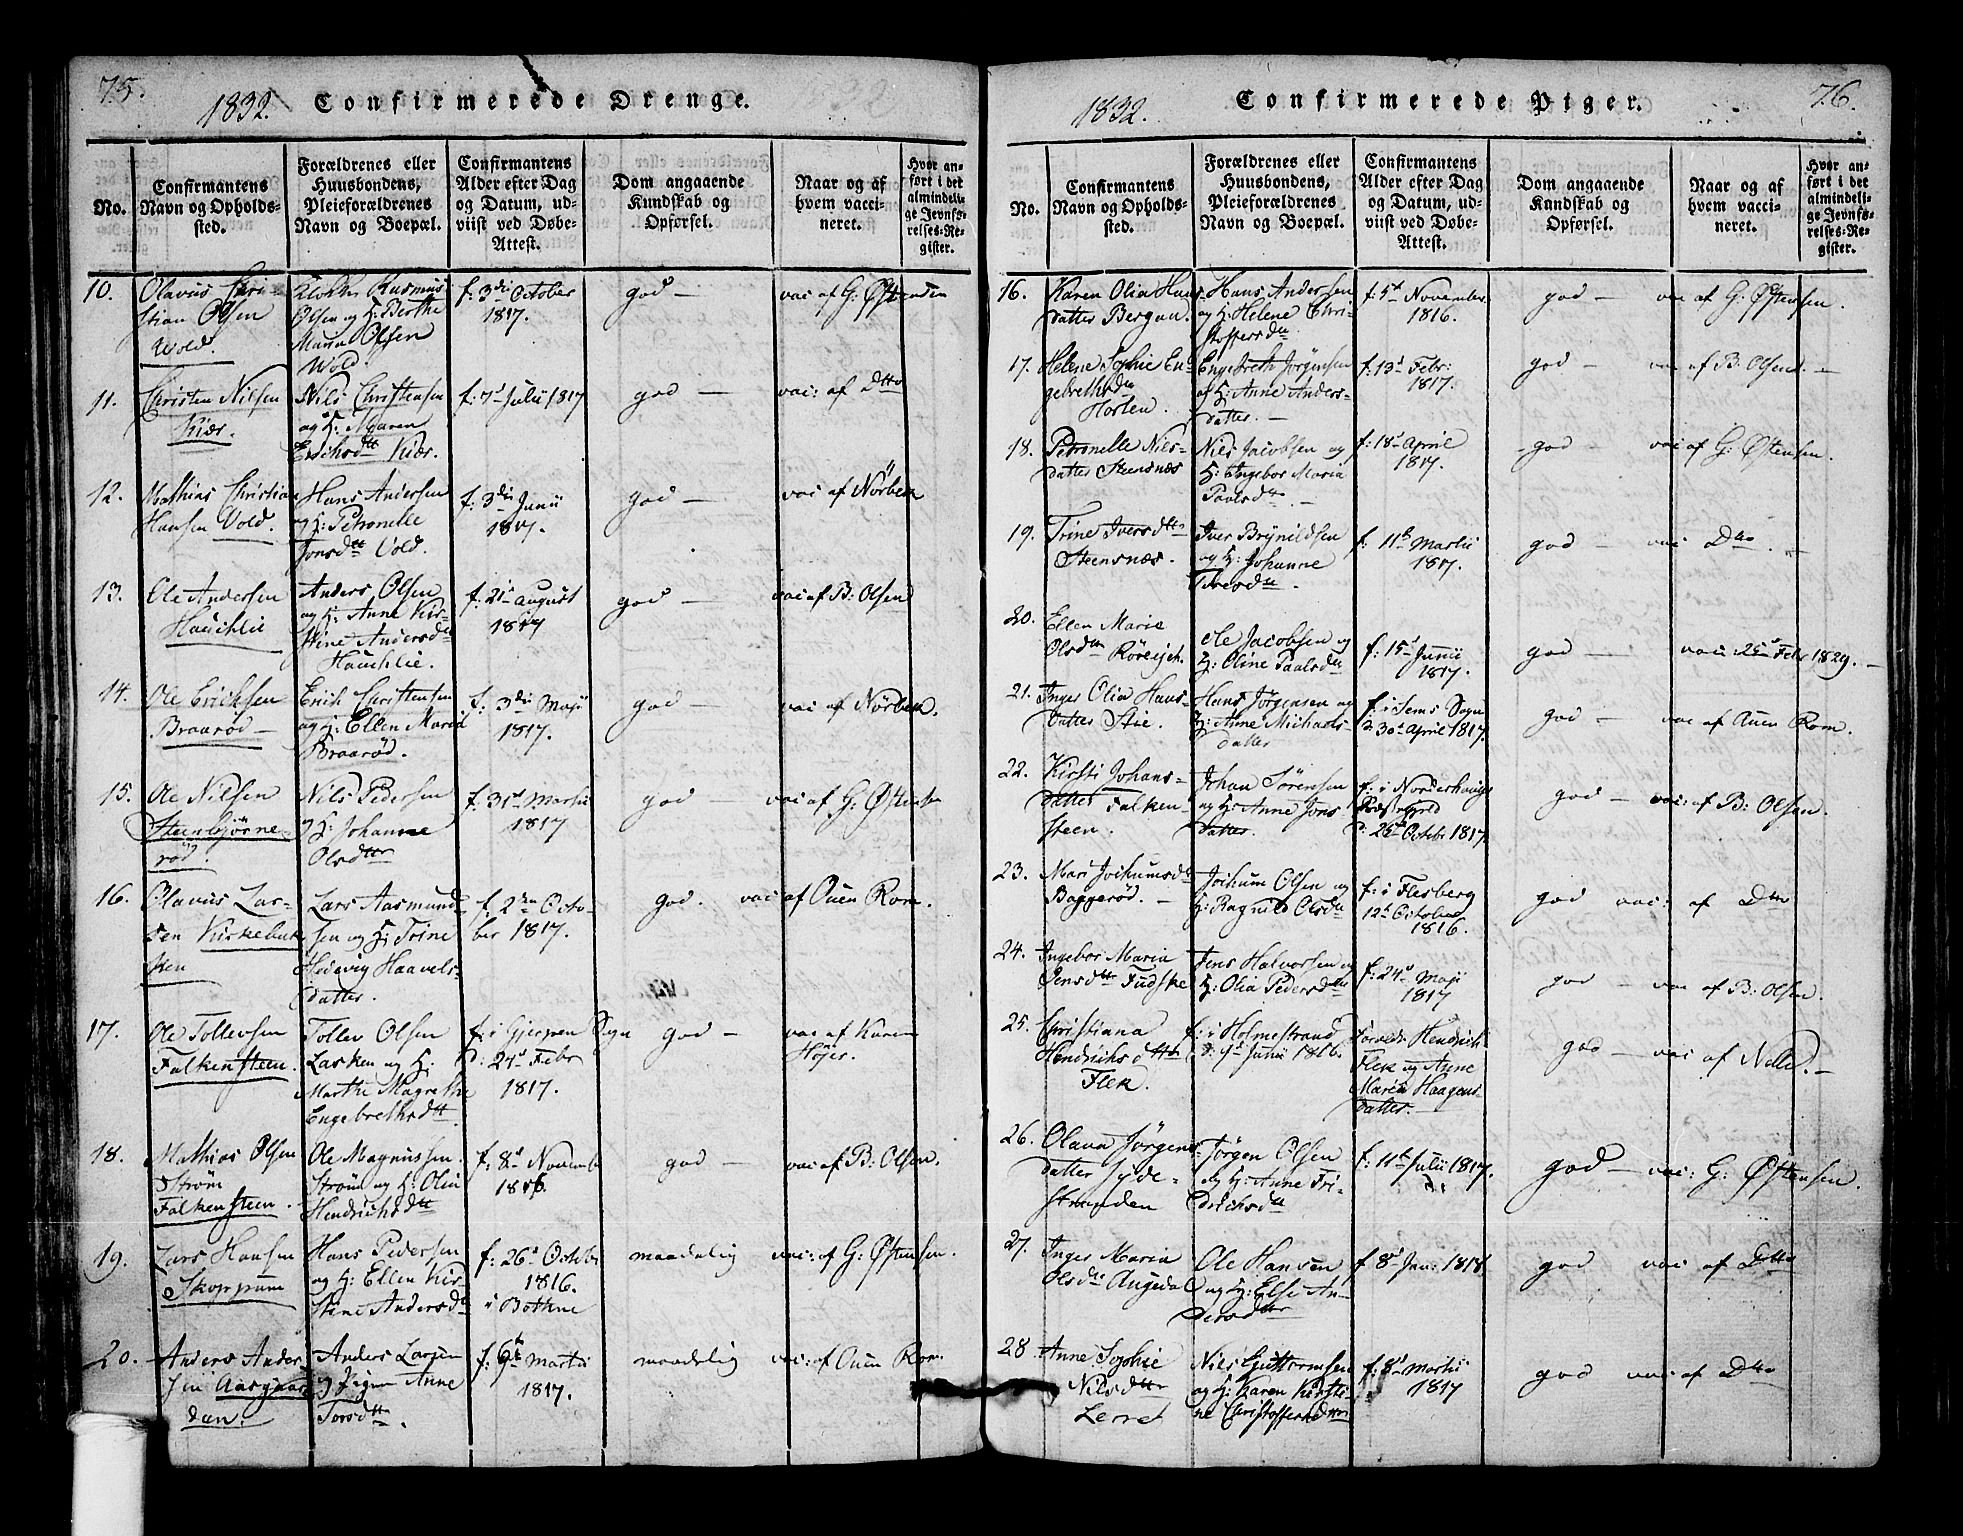 75.
1832. Confirmerede Drenge.
No.
Confirmantens
Navn og Opholds-
sted.
Forældrenes eller
Huusbondens,
Pleieforældrenes
Navn og Boepæl.
Confirmantens
Alder efter Dag
og Datum, ud-
viist ved Døbe-
Attest.
Dom angaaende
Kundskab og
Opførsel.
Naar og af
hvem vacci-
neret.
Hvor an-
ført i det
almindeli-
ge Jevnfø-
relses-Re-
gister.
10.
Olavus Chri-
stian Olsen
Wold.
Rasmus
Olsen og H: Berthe
Maria Olsen
Wold.
f: 3die October
1817.
god —
vac af G: Østensen
11.
Christen Nilsen
Kiær.
Nils Christensen
og H: Maren
Erichsdtt Kiær.
f: 7d Julii 1817
god —
vac: af Dtto
12.
Mathias Christian
Hansen Vold.
Hans Andersen
og H: Petronelle
Jonsdtt Vold.
f: 3die Junii
1817.
god —
vac af Nørbek
13.
Ole Andersen
Hauchlie
Anders Olsen
og H: Anne Kir-
stine Andersdtt
Hauchlie.
f: 21d August
1817
god —
vac af B: Olsen
14.
Ole Erichsen
Braarød —
Erich Christensen
og H: Ellen Maria
Braarød.
f: 3die Maji
1817.
god —
vac af Nørbek.
15.
Ole Nilsen
Steenbjørne-
rød.
Nils Pedersen
og H: Johanne
Olsdtter
f: 31d Martii
1817
god —
vac af G: Østensen
16.
Olavus Lar-
sen Kirkebak-
ken
Lars Aasmund-
sen og H: Trine
Hedevig Haavels-
datter.
f: 2den Octo-
ber 1817.
god.
vac af Ouen Rom.
17.
Ole Tollevsen
Falkensteen.
Tollev Olsen
Lasken og H:
Marthe Magrethe
Engebrethsdtt
f: i Gjerpen Sogn
d: 24d Febr
1817.
god —
vac af Karen
Høyer.
18.
Mathias Olsen
Strøm
Falkensteen.
Ole Magnussen
Strøm og H: Olia
Hendrichsdtt
f: 8d Novembr
1816.
god —
vac af B: Olsen.
19.
Lars Hansen
Skoppum
Hans Pedersen
og H: Ellen Kir-
stine Andersdtt
f: 26d Octobr
1816.
i Bothne
maadelig
vac: af G: Østensen.
20.
Anders Ander-
sen Aasgaar-
den.
Anders Larsen
og Pigen Anne
Torsdtt.
f: 6t Martii
1817.
maadelig
vac: af Ouen Rom.
76.
1832. Confirmerede Piger.
No.
Confirmantens
Navn og Opholds-
sted.
Forældrenes eller
Huusbondens,
Pleieforældrenes
Navn og Boepæl.
Confirmantens
Alder efter Dag
og Datum, ud-
viist ved Døbe-
Attest.
Dom angaaende
Kundskab og
Opførsel.
Naar og af
hvem vacci-
neret.
Hvor an-
ført i det
almindeli-
ge Jevnfø-
relses-Re-
gister.
16.
Karen Olia Hans-
datter Bergan.
Hans Andersen
og H: Helene Chri-
stoffersdtt
f: 5d November
1816.
god —
vac af G: Østensen.
17.
Helene Sophie En-
gebrethsdtt
Horten.
Engebreth Jørgensen
og H: Anne Anders-
datter. —
f: 13d Febr:
1817.
god —
vac af B: Olsen. —
18.
Petronelle Nils-
datter Steensnæs
Niels Jacobsen og
H: Ingebor Maria
Paulsdtt
f: 18d April
1817.
god —
vac: af G: Østensen.
19.
Trine Iversdtt
Steensnæs.
Iver Brynildsen
og H: Johanne
Toresdtt.
f: 11t Martii
1817.
god —
vac Dtto. —
20.
Ellen Marie
Olsdtt Røreich.
Ole Jacobsen og
H: Oline Paalsdtt
f: 15d Junii
1817.
god —
vac: 25d Febr 1829. —
21.
Inger Olia Hans-
datter Stie.
Hans Jørgensen og
H: Anne Michaels-
datter
f: i Sems Sogn
d: 30d April 1817.
god —
vac af Auen Rom.
22.
Kirsti Johans-
datter Falken-
steen.
Johan Sørensen
og H: Anne Jons-
datter.
f: i Norderhougs
Præstegjeld
d: 25d Octobr 1817.
god —
vac: af B: Olsen.
23.
Mari Jochumsdtt
Baggerød.
Jochum Olsen og
H: Ragnild Olsdtt
f: i Flesberg
12t October
1816.
god
vac: af Dtto
24.
Ingebor Maria
Jensdtt Fudske
Jens Halvorsen og
H: Olia Pedersdtt
f: 24d Maji
1817
god —
vac af B: Olsen.
25.
Christiana
Hendrichsdtt
Flek.
f: i Holmestrand
d: 9d Junii 1816.
Hendrich
Flek og Anne
Maria Haagens-
datter.
god —
vac af Nelle. —
26.
Olava Jørgens-
datter Syde-
stranden
Jørgen Olsen
og H: Anne Fri-
drichsdtt
f: 11t Julii 1817.
god —
vac: G: Østensen.
27.
Inger Maria
Olsdtt Augedal
Ole Hansen
og H: Else An-
dersdtter
f: 8d Jan: 1818
god
vac af Dtto
28
Anne Sophie
Nilsdtt
Lerret
Niels Guttormsen
og H: Karen Kirsti-
ne Christoffersdtt
f: 8d Martii
1817
god
vac af Dtto